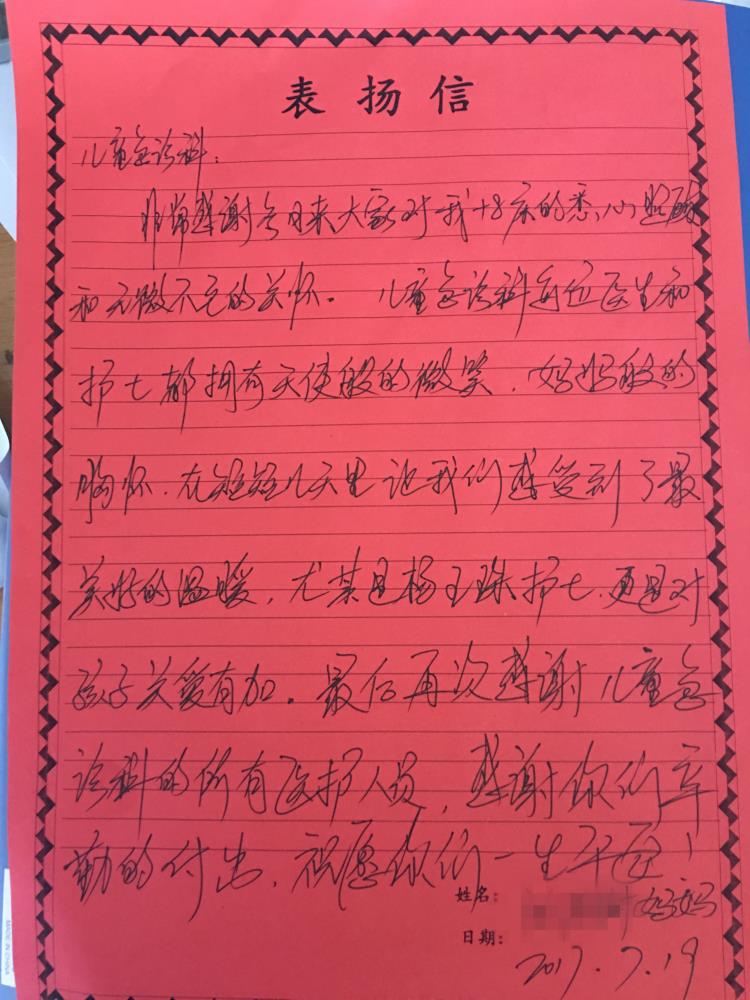 表扬信
儿童急诊科：
非常感谢多日来大家对我十8床的悉心照顾
和无微不至的关怀。儿童急诊科每位医生和
护士都拥有天使般的微笑，妈妈般的
胸怀，在短短几天里让我们感受到了最
美好的温暖，尤其是杨玉珠护士，更是对
孩子关爱有加。最后再次感谢儿童急
诊科的所有医护人员，感谢你们辛
勤的付出，祝愿你们一生平安！
姓名： 妈妈
日期： 2017.7.19
MADE IN CHINA